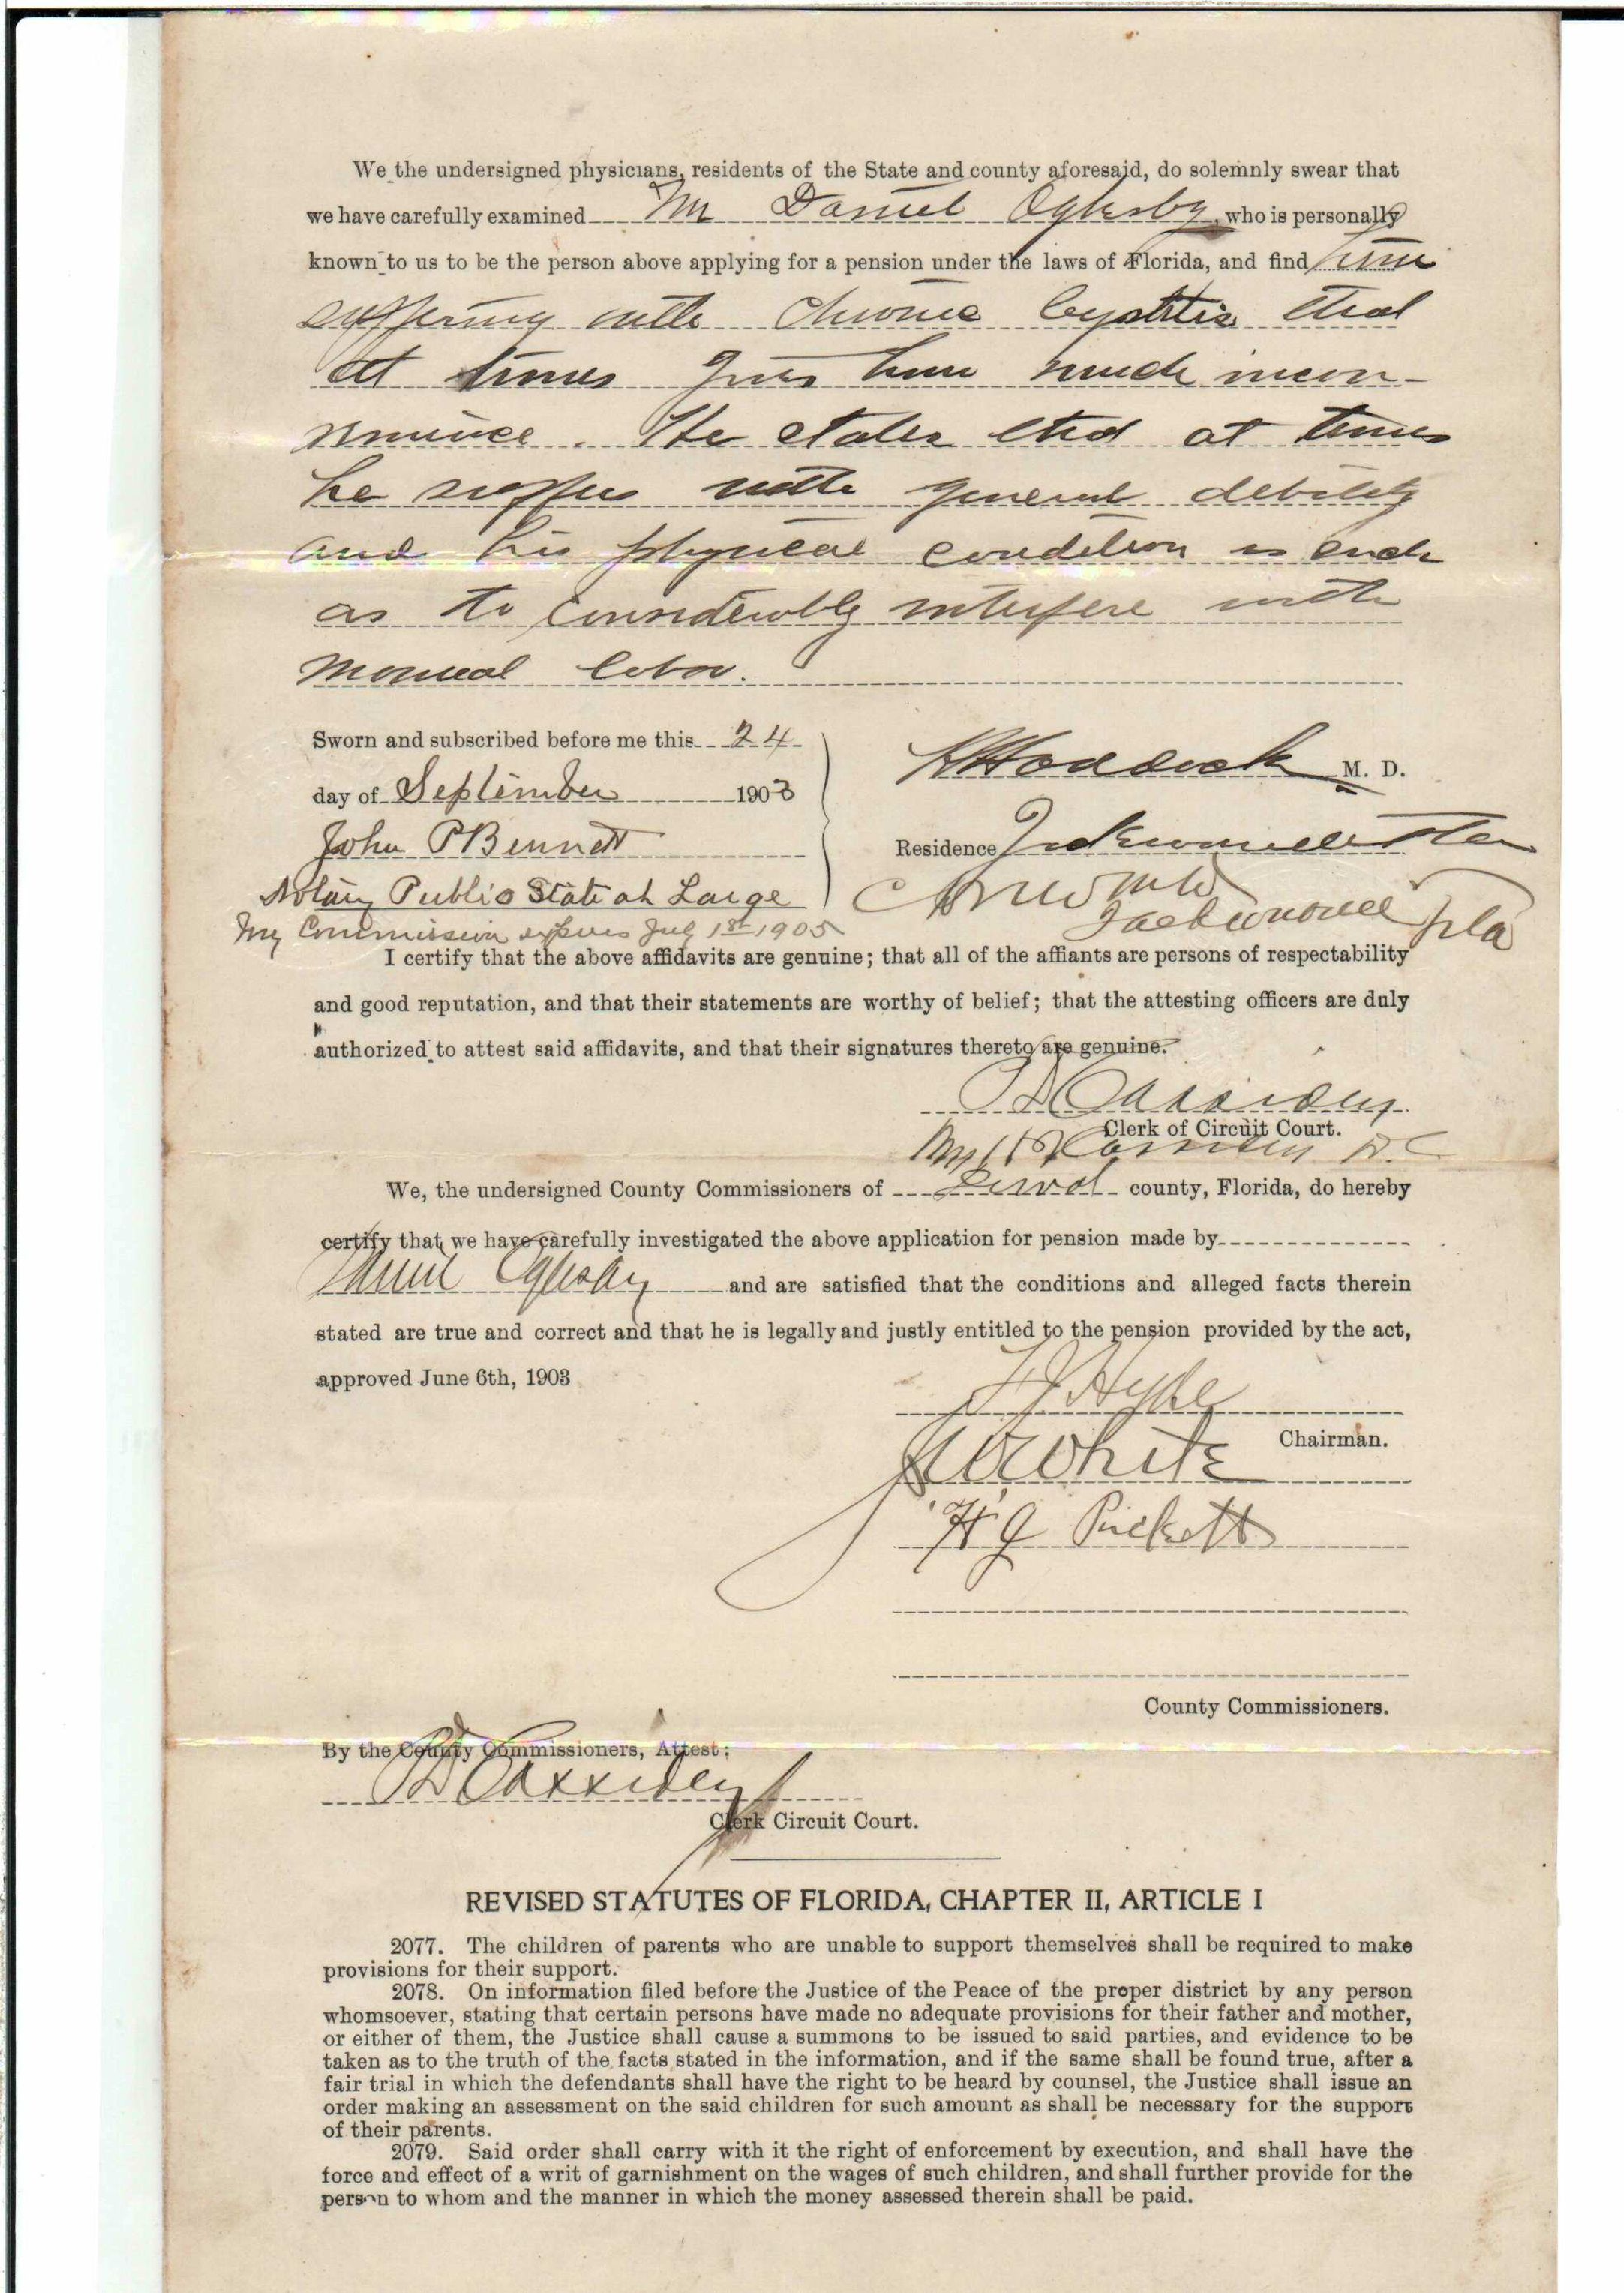 We the undersigned physicians, residents of the State and county aforesaid, do solemnly swear that
we have carefully examined Mr Daniel Oglesby, who is personally
known to us to be the person above applying for a pension under the laws of Florida, and find him
suffering with Chronic Cystitis that
at times gives him much incon-
venience. He states that at times
he suffers with general debility
and his physical condition is such
as to considerably interfere with
manual labor.
Sworn and subscribed before me this 24
day of September 1903
John P Bennett
Notary Public State at Large
My Commission expires July 1st 1905
M. D.
Residence Jacksonville Fla
Jacksonville Fla
I certify that the above affidavits are genuine; that all of the affiants are persons of respectability
and good reputation, and that their statements are worthy of belief; that the attesting officers are duly
authorized to attest said affidavits, and that their signatures thereto are genuine.
P D Cassidey
Clerk of Circuit Court.
Cassidey D. C
We, the undersigned County Commissioners of Duval county, Florida, do hereby
certify that we have carefully investigated the above application for pension made by
Daniel Oglesby and are satisfied that the conditions and alleged facts therein
stated are true and correct and that he is legally and justly entitled to the pension provided by the act,
approved June 6th, 1903
Hyde
Chairman.
White
H J Pickett
County Commissioners.
By the County Commissioners, Attest:
P D Cassidey
Clerk Circuit Court.
REVISED STATUTES OF FLORIDA, CHAPTER II, ARTICLE I
2077. The children of parents who are unable to support themselves shall be required to make
provisions for their support.
2078. On information filed before the Justice of the Peace of the proper district by any person
whomsoever, stating that certain persons have made no adequate provisions for their father and mother,
or either of them, the Justice shall cause a summons to be issued to said parties, and evidence to be
taken as to the truth of the facts stated in the information, and if the same shall be found true, after a
fair trial in which the defendants shall have the right to be heard by counsel, the Justice shall issue an
order making an assessment on the said children for such amount as shall be necessary for the support
of their parents.
2079. Said order shall carry with it the right of enforcement by execution, and shall have the
force and effect of a writ of garnishment on the wages of such children, and shall further provide for the
person to whom and the manner in which the money assessed therein shall be paid.